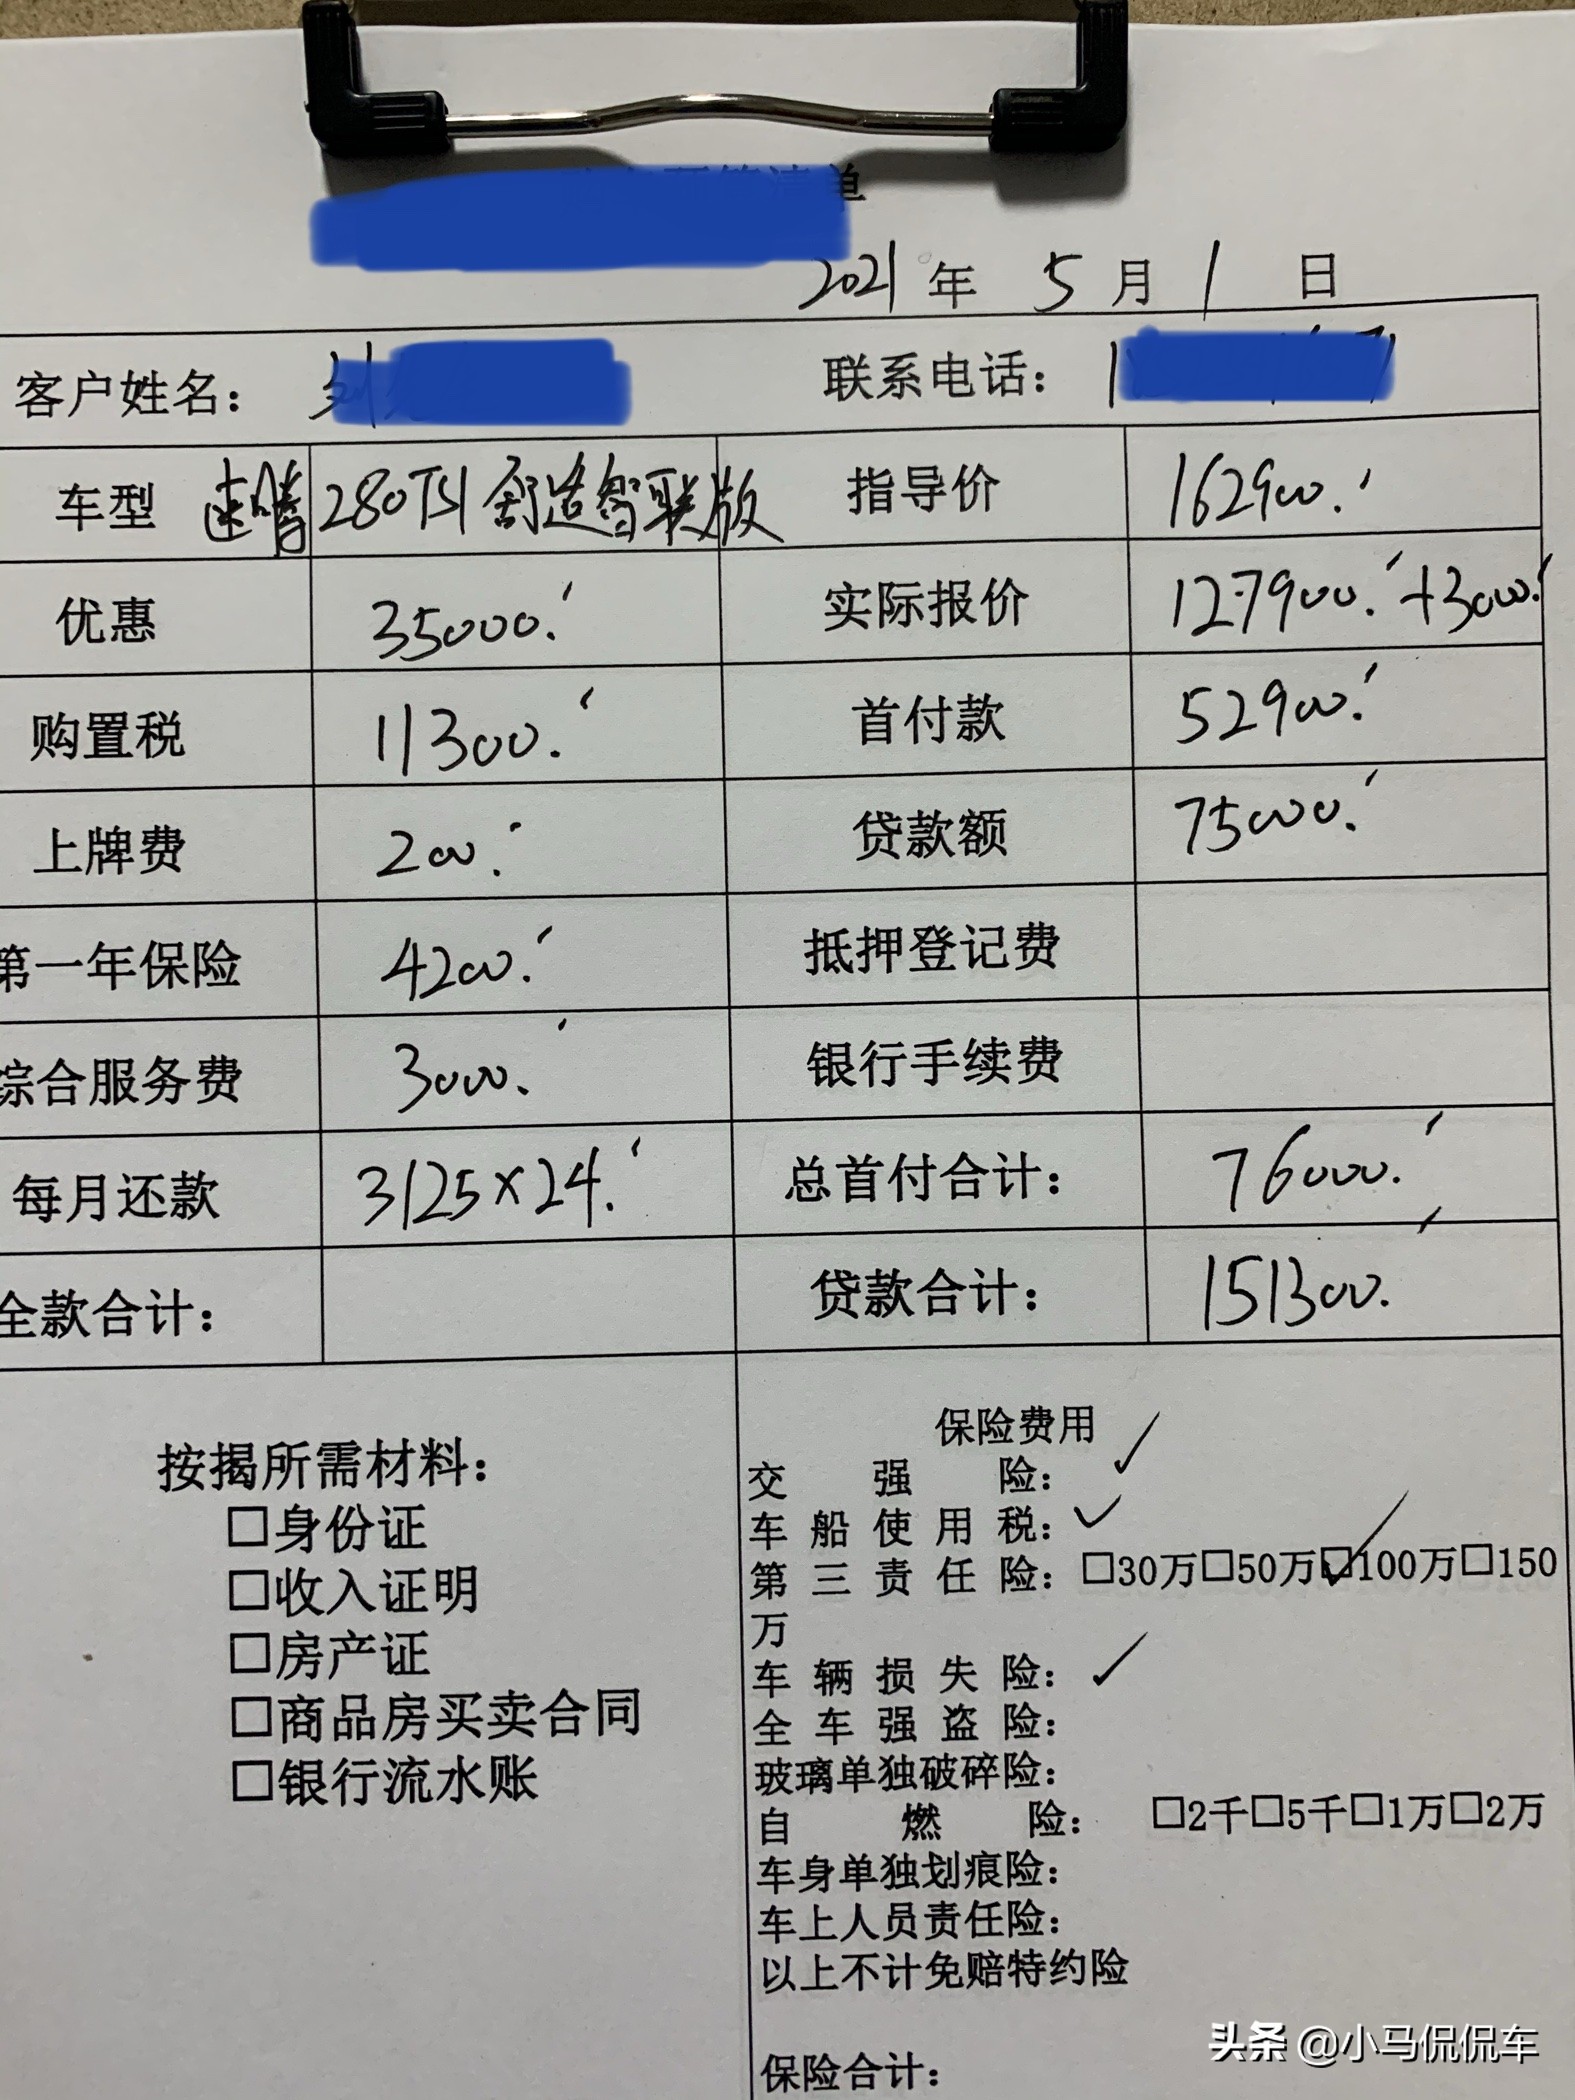 单
2021年 5月 1日
客户姓名： 刘 联系电话： 1
车型 速腾 280TSI 舒适智联版 指导价 162900.
优惠 35000. 实际报价 127900.+3000.
购置税 11300. 首付款 52900.
上牌费 200. 贷款额 75000.
第一年保险 4200. 抵押登记费
综合服务费 3000. 银行手续费
每月还款 3125×24. 总首付合计： 76000.
全款合计： 贷款合计： 151300.
按揭所需材料：
□身份证
□收入证明
□房产证
□商品房买卖合同
□银行流水账
保险费用
交强险：✓
车船使用税：✓
第三责任险：□30万□50万☑100万□150
万
车辆损失险：✓
全车强盗险：
玻璃单独破碎险：
自燃险： □2千□5千□1万□2万
车身单独划痕险：
车上人员责任险：
以上不计免赔特约险
保险合计：
头条 @小马侃侃车